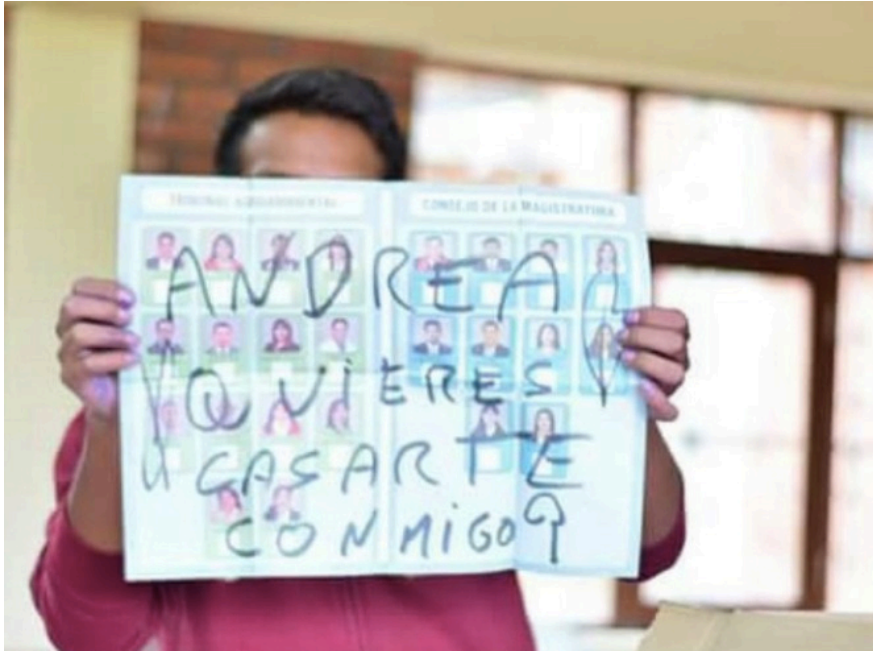 TRIBUNAL AGROAMBIENTAL
CONSEJO DE LA MAGISTRATURA
ANDREA
¿QUiERES
CASARTE
CONMiGO?